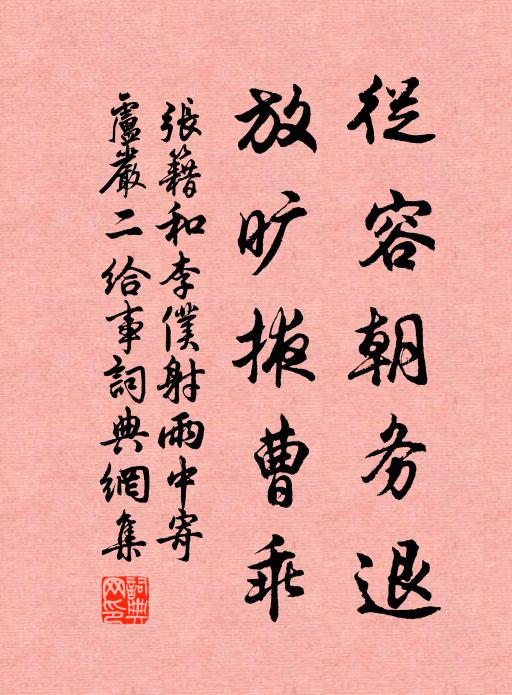 從容朝务退
放旷掖曹乖
張籍和李僕射雨中寄
盧嚴二给事詞典網集
詞典
网印